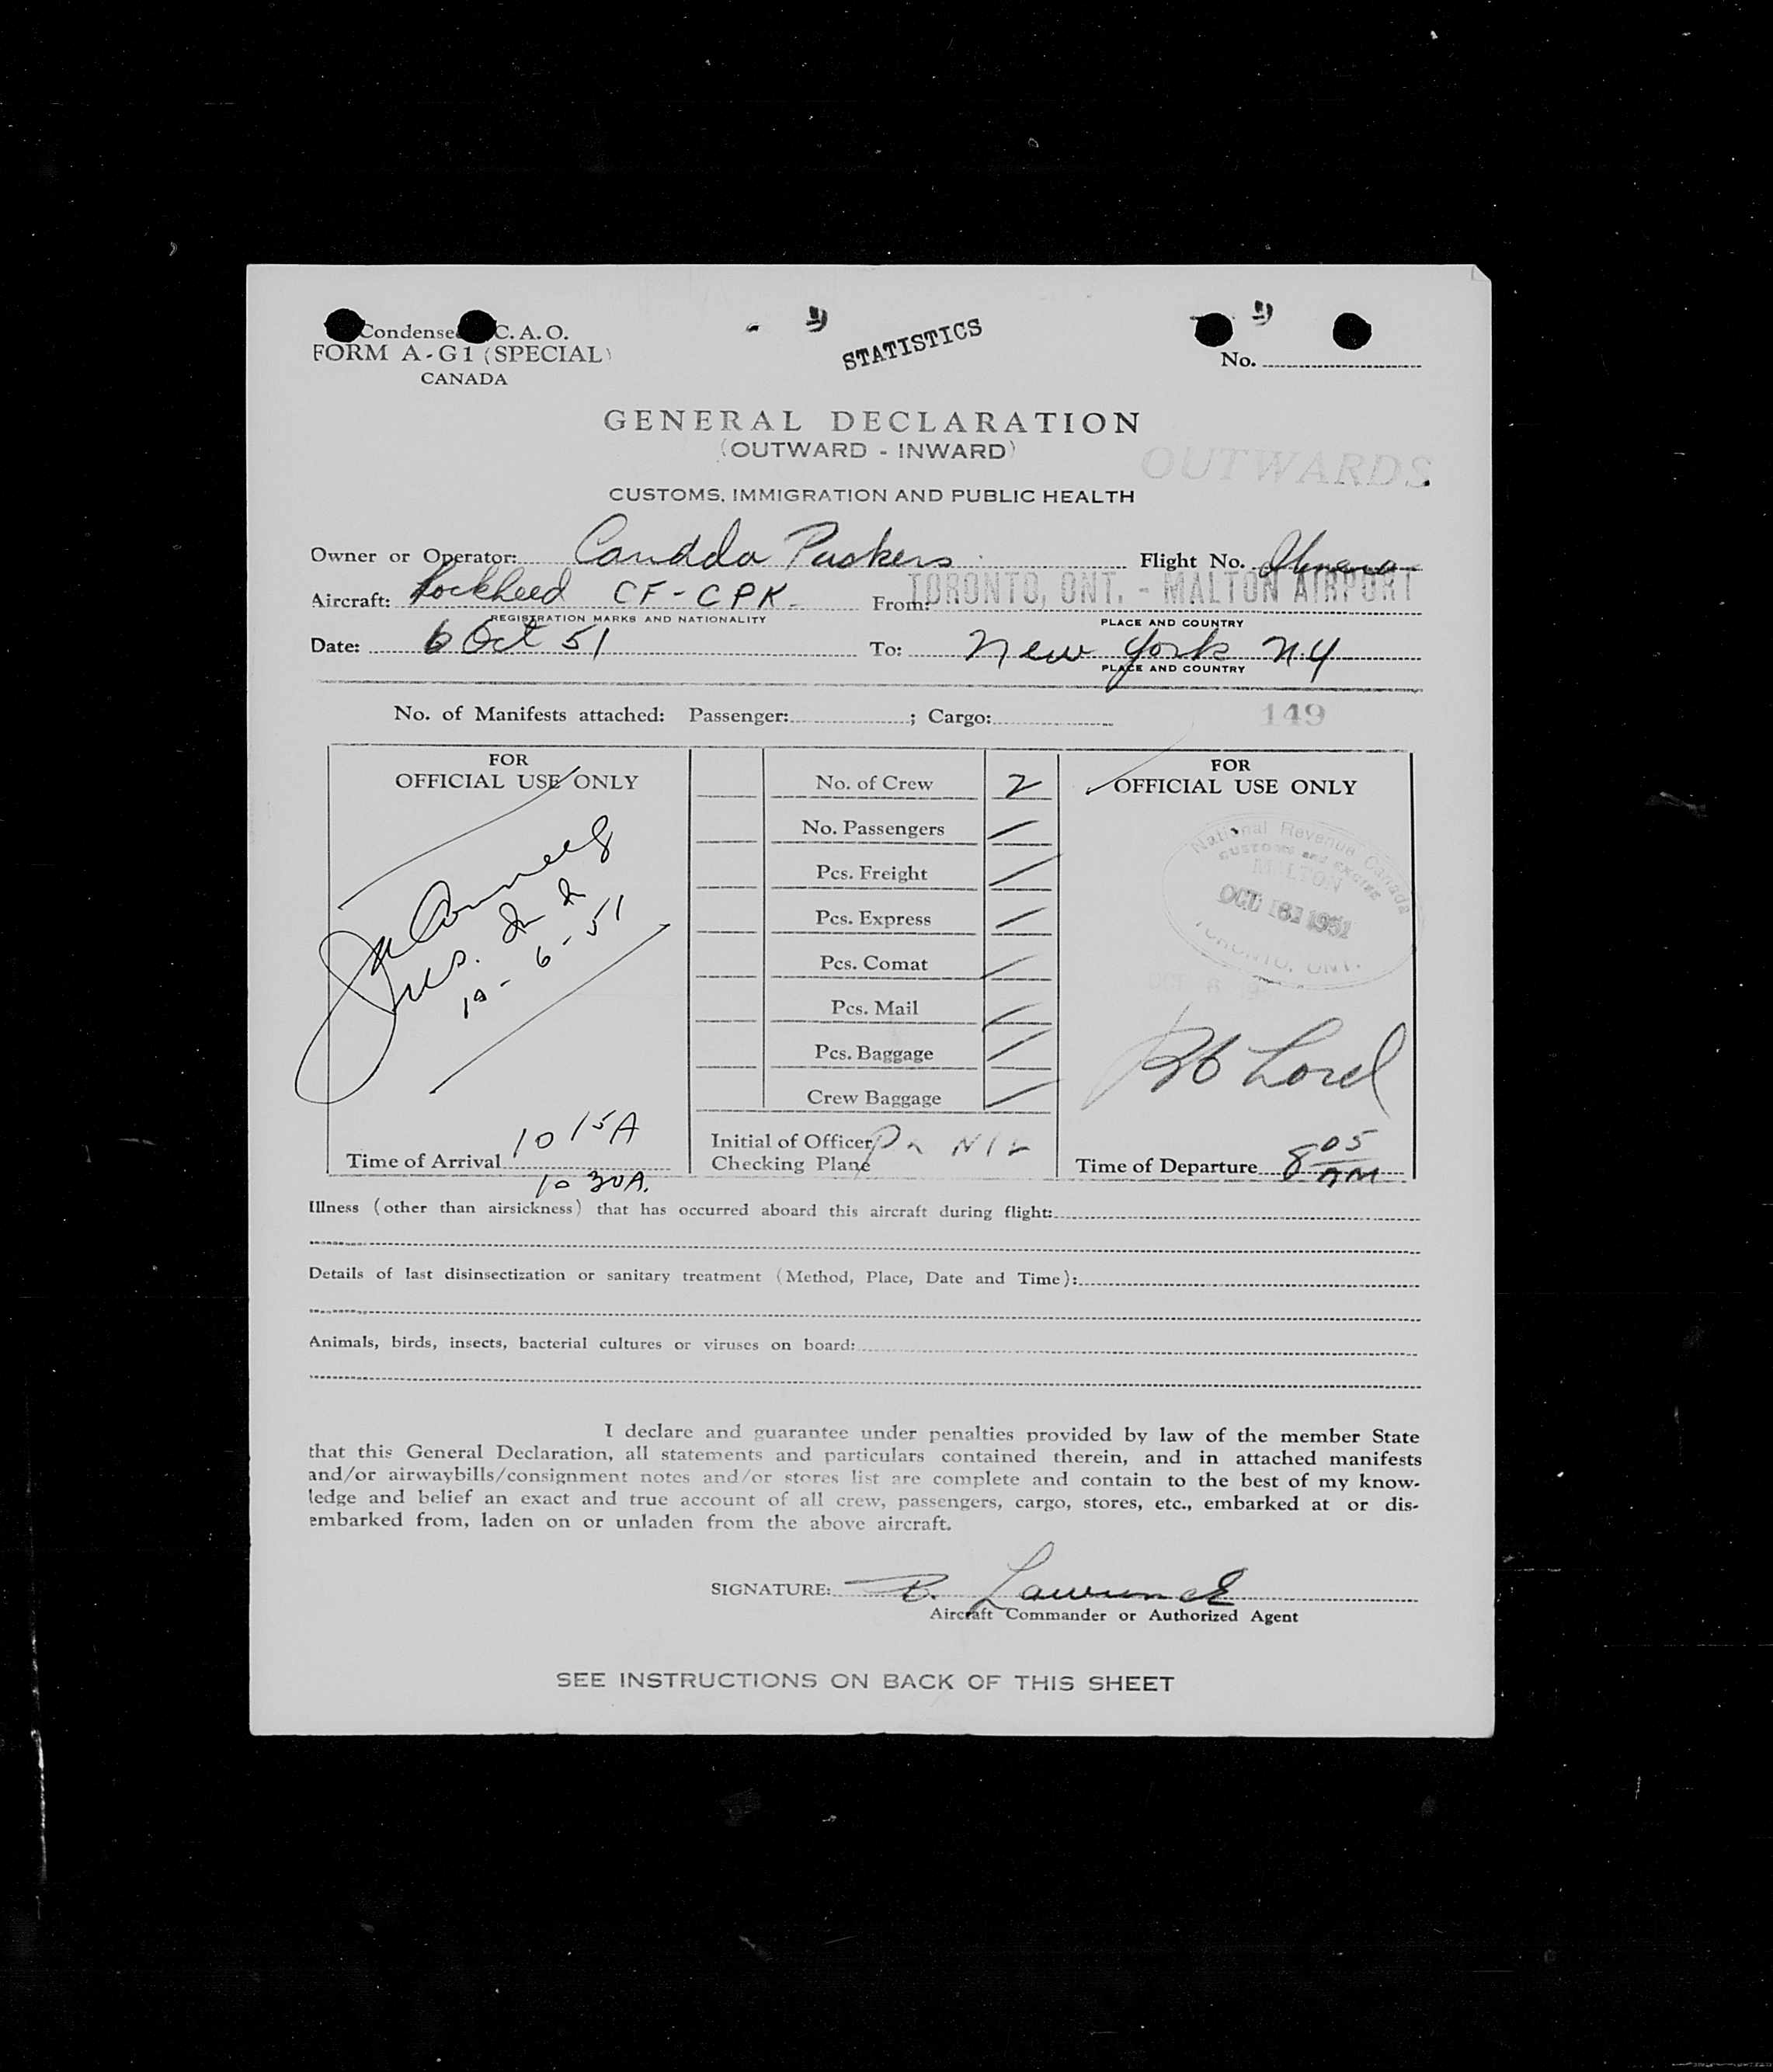 Condensed C.A.O.
FORM A-G1 (SPECIAL)
CANADA
STATISTICS
No.
GENERAL DECLARATION
(OUTWARD - INWARD)
OUTWARDS
CUSTOMS, IMMIGRATION AND PUBLIC HEALTH
Owner or Operator: Canada Packers Flight No.
Aircraft: Lockheed CF-CPK From: TORONTO, ONT. - MALTON AIRPORT
REGISTRATION MARKS AND NATIONALITY PLACE AND COUNTRY
Date: 6 Oct 51 To: New York NY
PLACE AND COUNTRY
No. of Manifests attached: Passenger: ; Cargo: 149
FOR
OFFICIAL USE ONLY
10-6-51
Time of Arrival 10 15A
10 30A.
No. of Crew 2
No. Passengers
Pcs. Freight
Pcs. Express
Pcs. Comat
Pcs. Mail
Pcs. Baggage
Crew Baggage
Initial of Officer
Checking Plane
FOR
OFFICIAL USE ONLY
National Revenue Canada
CUSTOMS and EXCISE
MALTON
OCT 6 1951
TORONTO, ONT.
Lord
Time of Departure 8 05 AM
Illness (other than airsickness) that has occurred aboard this aircraft during flight:
Details of last disinsectization or sanitary treatment (Method, Place, Date and Time):
Animals, birds, insects, bacterial cultures or viruses on board:
I declare and guarantee under penalties provided by law of the member State
that this General Declaration, all statements and particulars contained therein, and in attached manifests
and/or airwaybills/consignment notes and/or stores list are complete and contain to the best of my know-
ledge and belief an exact and true account of all crew, passengers, cargo, stores, etc., embarked at or dis-
embarked from, laden on or unladen from the above aircraft.
SIGNATURE: B. Lawrence
Aircraft Commander or Authorized Agent
SEE INSTRUCTIONS ON BACK OF THIS SHEET